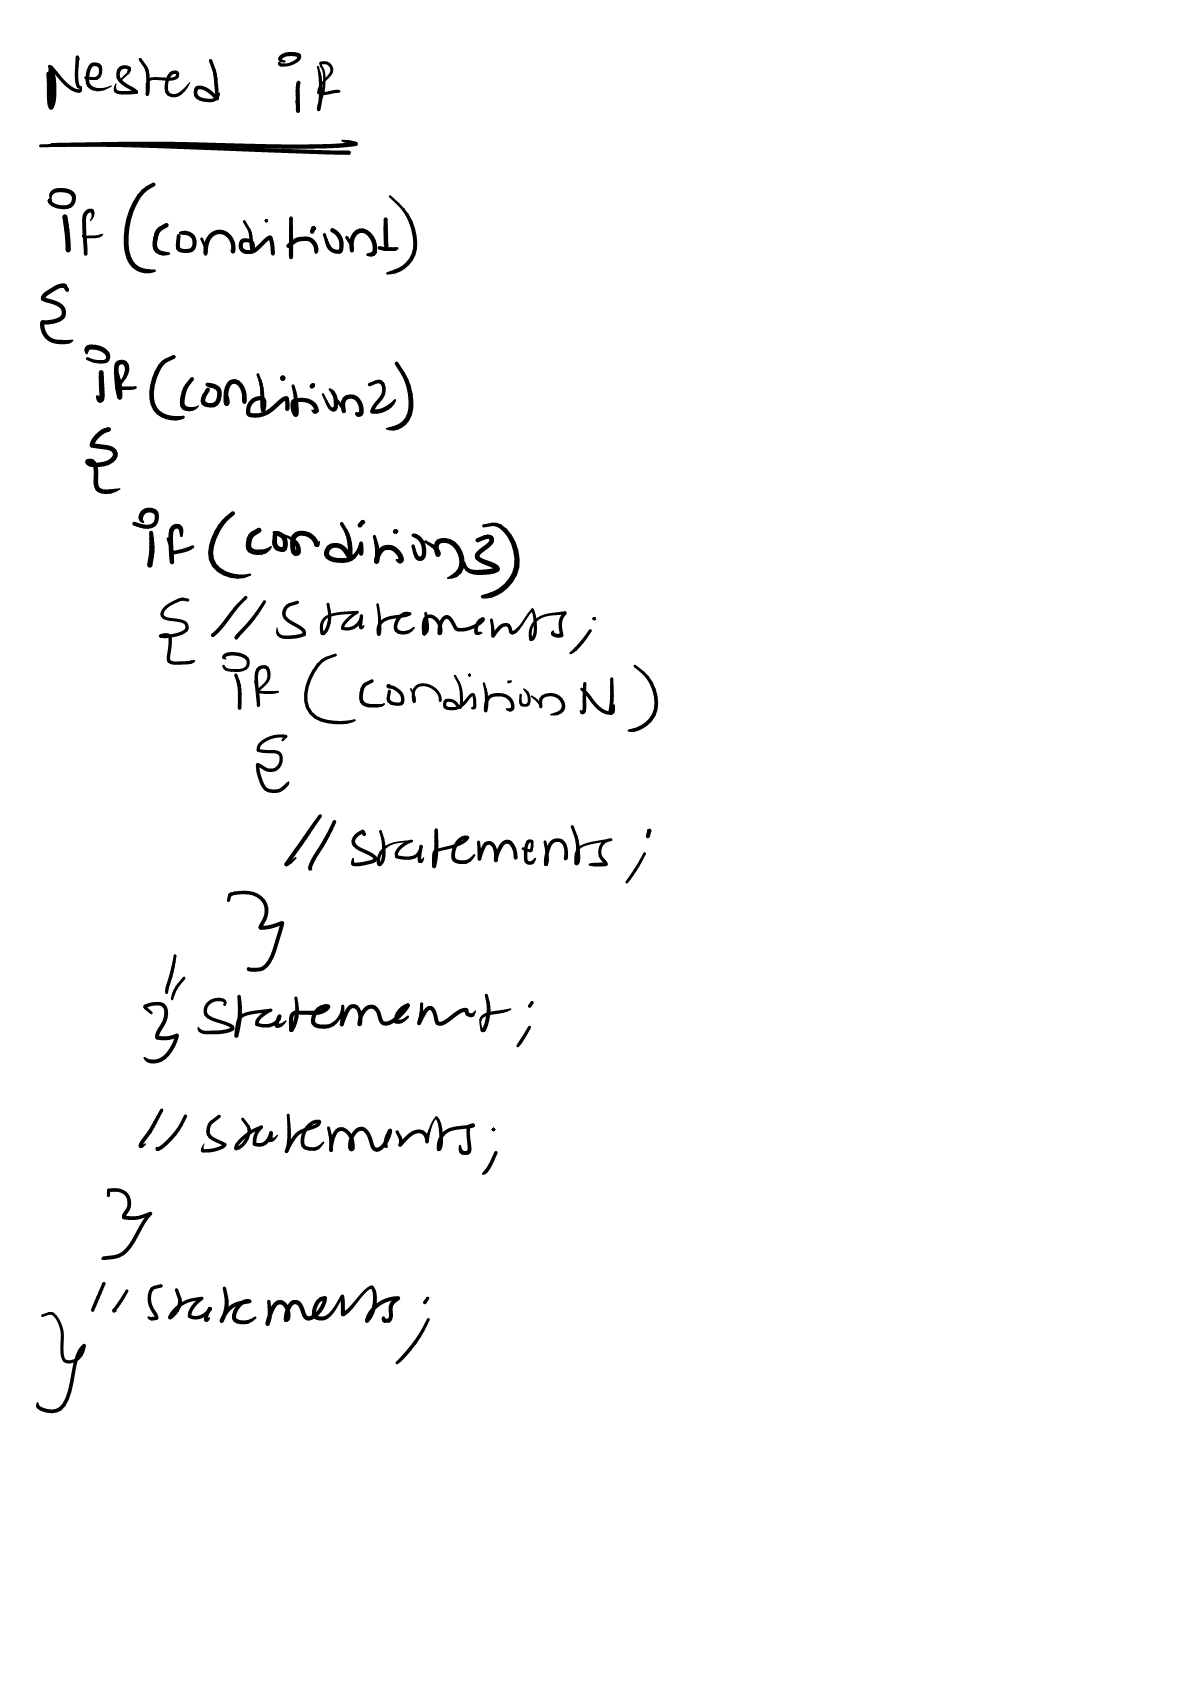 Nested if
if (condition1)
{
if (condition2)
{
if (condition3)
{ // Statements;
if (condition N)
{
// statements;
}
//
} Statement;
// statements;
}
// statements;
}